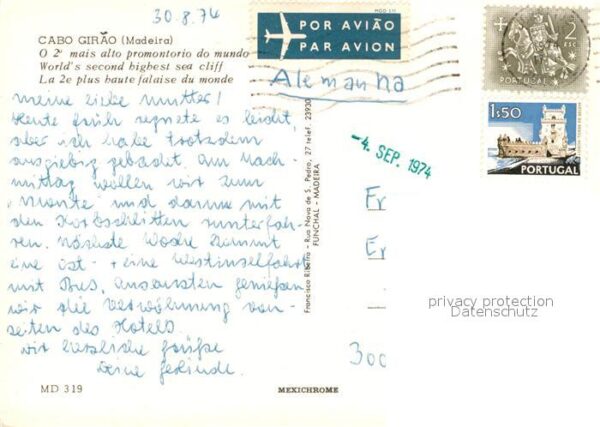 30.8.74
CABO GIRÃO (Madeira)
O 2º mais alto promontorio do mundo
World's second highest sea cliff
La 2e plus haute falaise du monde
meine liebe mutter!
Heute früh regnete es leicht,
aber ich habe trotzdem
ausgiebig gebadet. Am Nach-
mittag wollen wir zum
"Monte" und dann mit
den Korbschlitten runterfah-
ren. Nächste Woche kommt
eine Ost- + eine Westinselfahrt
mit Bus. Ansonsten genießen
wir die Verwöhnung von-
seiten des Hotels
wir herzliche Grüße
Deine
MD 319
Francisco Ribeiro - Rua Nova de S. Pedro, 27 telef. 23930
FUNCHAL - MADEIRA
MEXICHROME
POR AVIÃO
PAR AVION
Alemanha
2
ESC
PORTUGAL
1$50
PORTUGAL
-4. SEP. 1974
Er
Er
300
privacy protection
Datenschutz